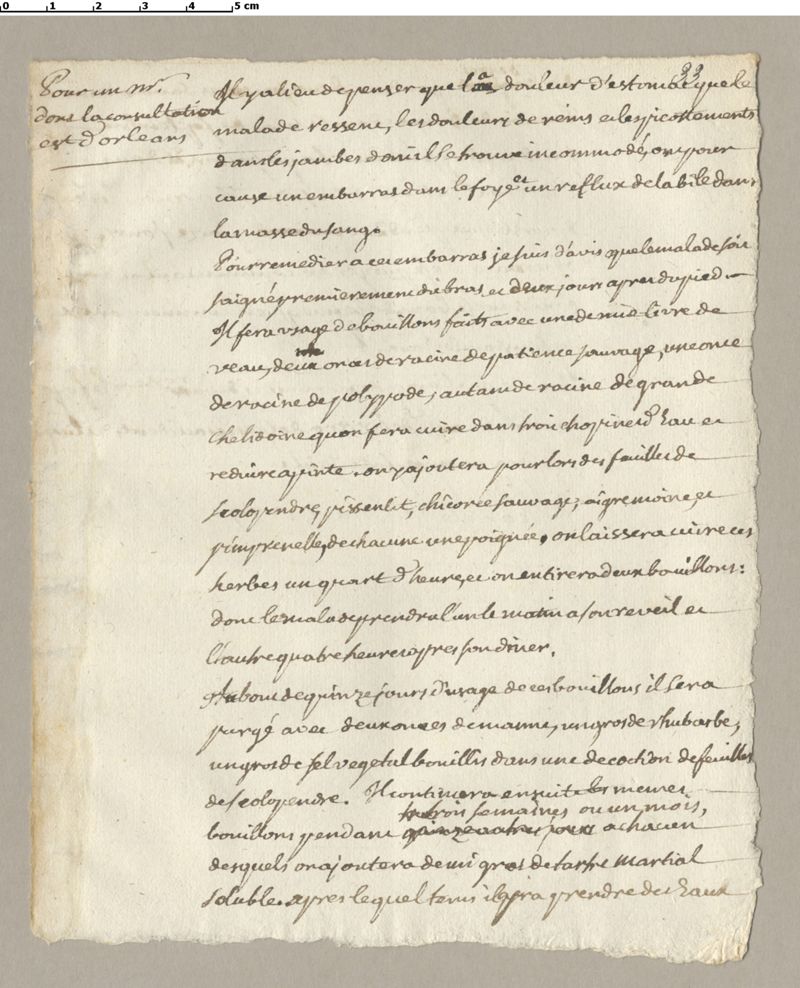 0 1 2 3 4 5 cm
33
Pour un mr.
dont la consultation
est d'orleans
Il y a lieu de penser que la douleur d'estomac que le
malade ressent, les douleurs de reins et les picottements
dans les jambes dont il se trouve incommodé, ont pour
cause un embarras dans le foye et un reflux de la bile dans
la masse du sang.
Pour remedier a cet embarras je suis d'avis que le malade soit
saigné premierement du bras, et deux jours apres du pied
Il fera usage de bouillons faits avec une demie livre de
veau, deux onces de racine de patience sauvage, une once
de racine de polypode, autant de racine de grande
chelidoine quon fera cuire dans trois chopines d'eau et
reduire a pinte. on y ajoutera pour lors des feuilles de
scolopendre, pissenlit, chicorée sauvage, aigremoine, et
pimprenelle, de chacune une poignée, on laissera cuire ces
herbes un quart d'heure, et on en tirera deux bouillons:
dont le malade prendra l'un le matin a son reveil et
l'autre quatre heures apres son diner.
Au bout de quinze jours d'usage de ces bouillons il sera
purgé avec deux onces de manne, un gros de rhubarbe,
un gros de sel vegetal bouillis dans une decoction de feuilles
de scolopendre. Il continuera ensuite les memes
trois semaines ou un mois,
bouillons pendant quinze autres jours a chacun
desquels on ajoutera demi gros de tartre martial
soluble. apres lequel tems il ira prendre des eaux